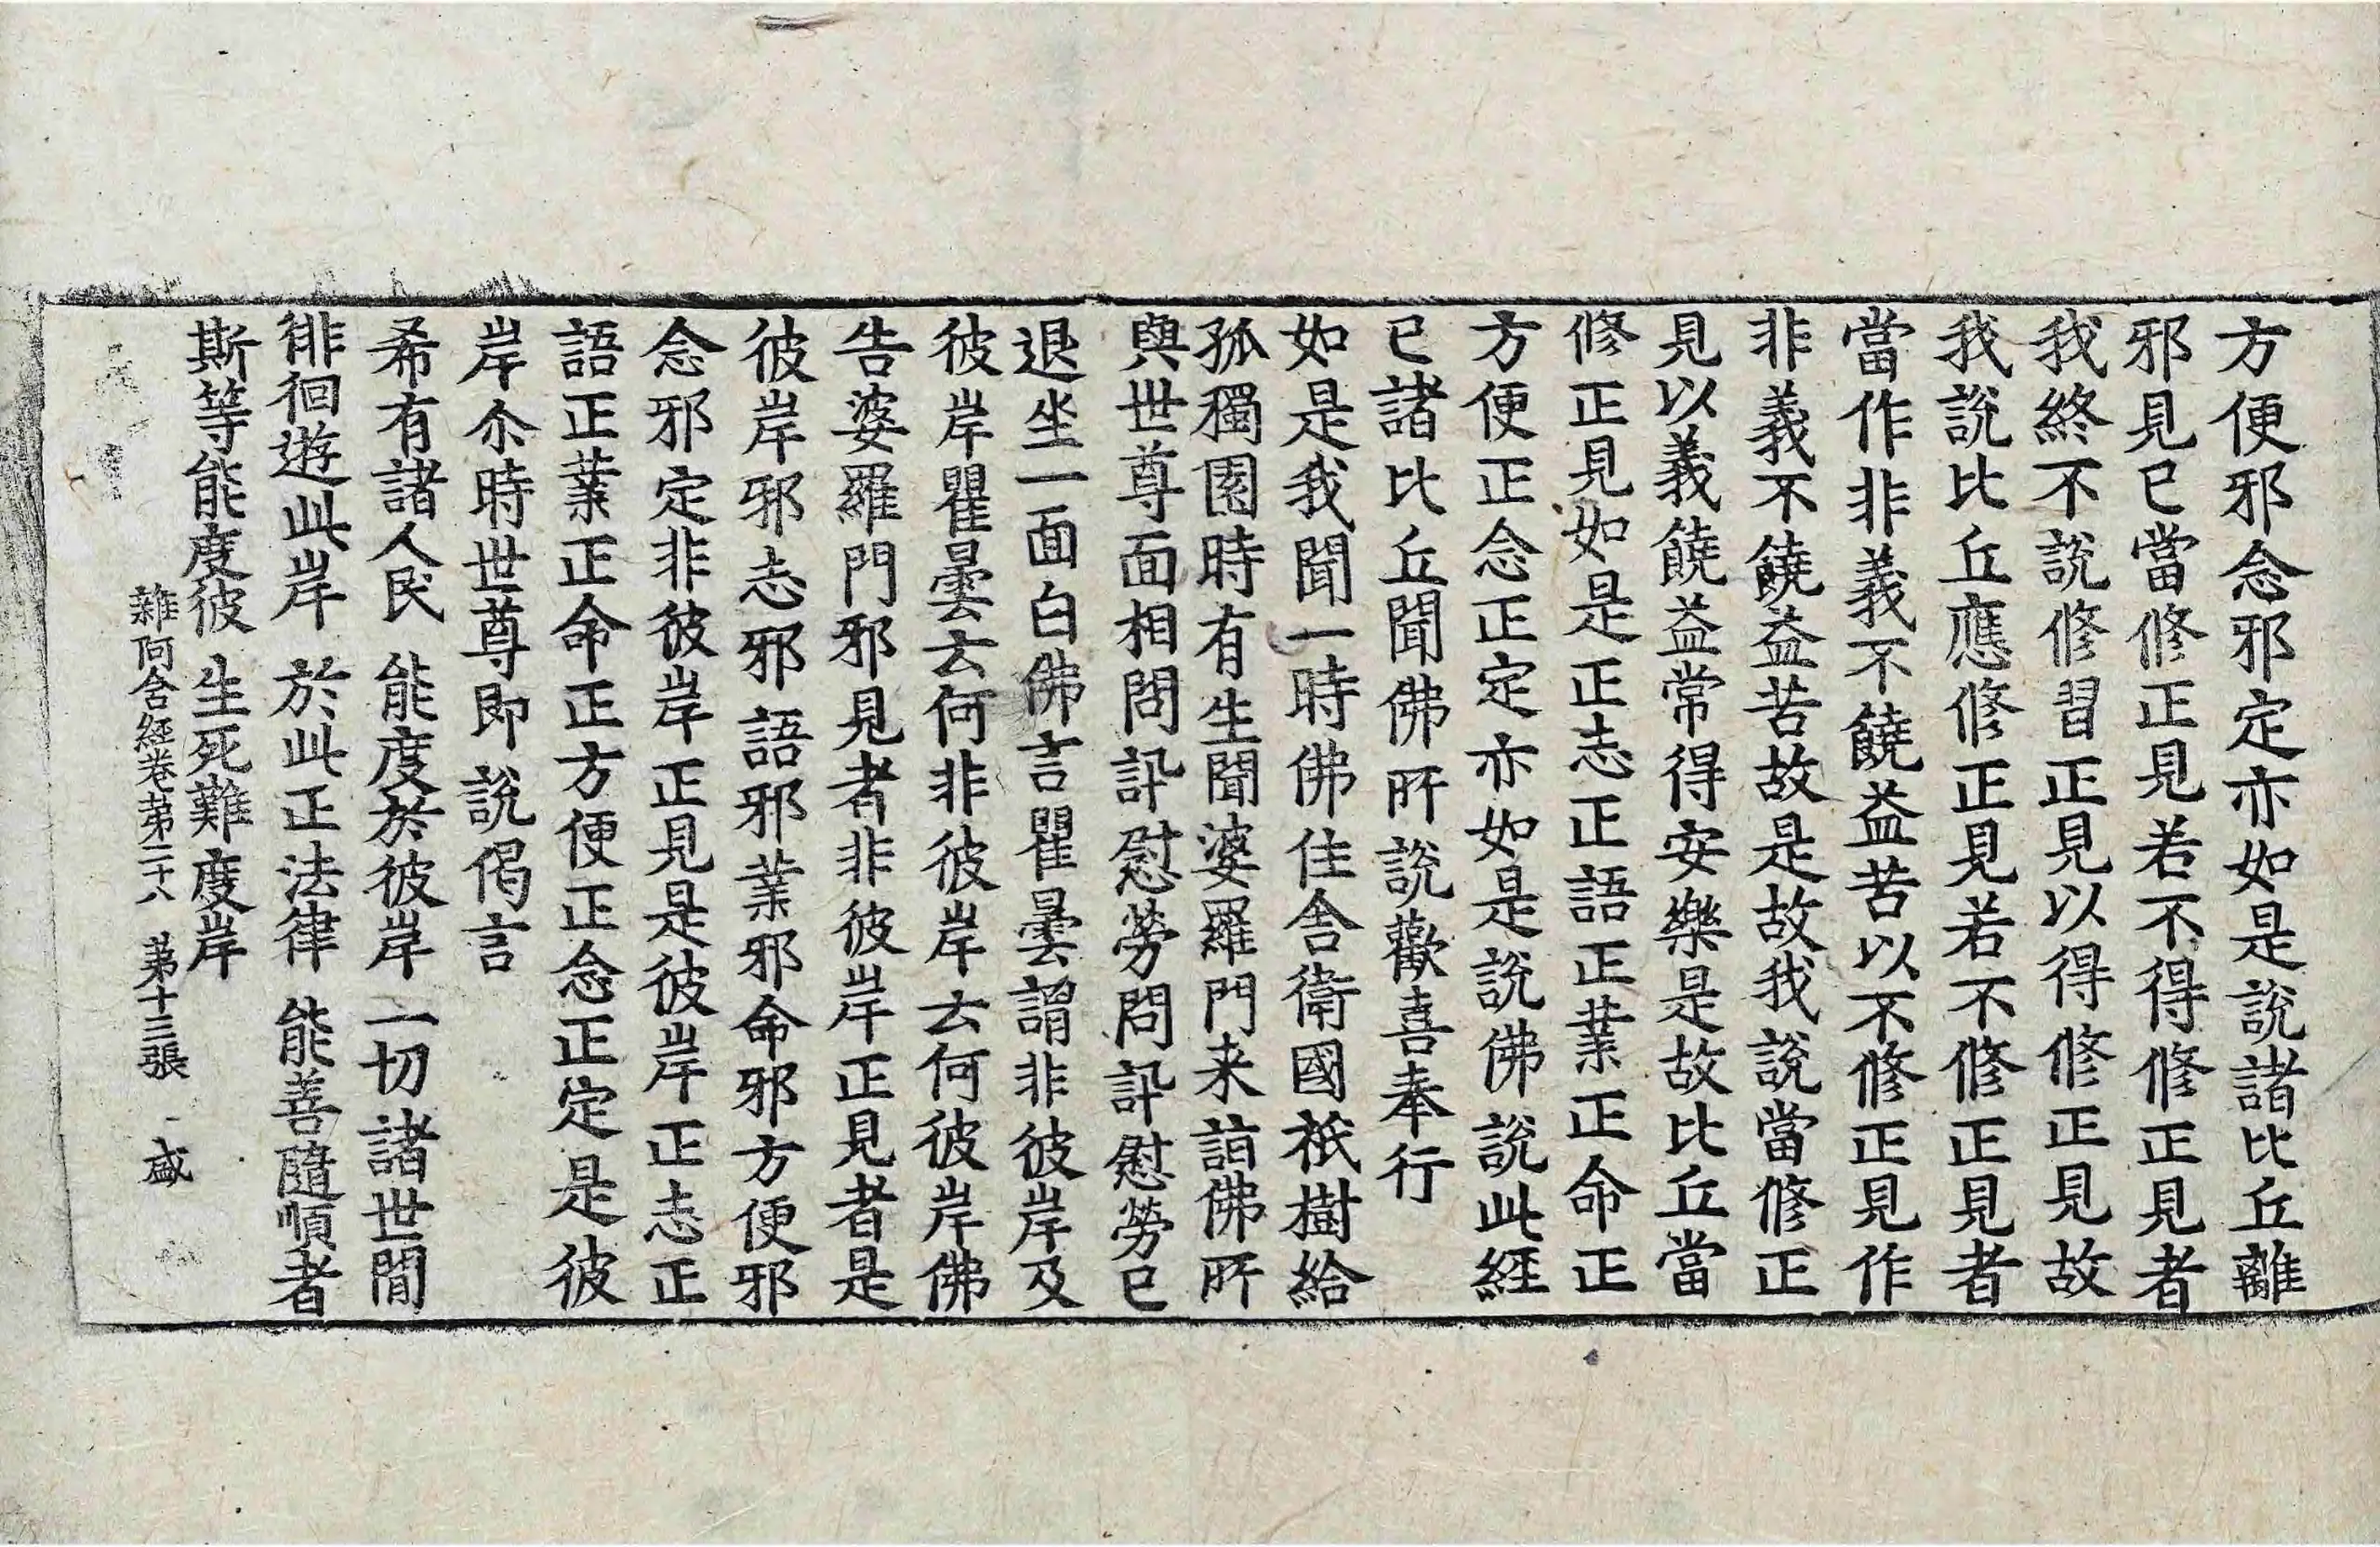 方便邪念邪定亦如是說諸比丘離
邪見已當修正見若不得修正見者
我終不說修習正見以得修正見故
我說比丘應修正見若不修正見者
當作非義不饒益苦以不修正見作
非義不饒益苦故是故我說當修正
見以義饒益常得安樂是故比丘當
修正見如是正志正語正業正命正
方便正念正定亦如是說佛說此經
已諸比丘聞佛所說歡喜奉行
如是我聞一時佛住舍衛國祇樹給
孤獨園時有生聞婆羅門来詣佛所
與世尊面相問訊慰勞問訊慰勞已
退坐一面白佛言瞿曇謂非彼岸及
彼岸瞿曇云何非彼岸云何彼岸佛
告婆羅門邪見者非彼岸正見者是
彼岸邪志邪語邪業邪命邪方便邪
念邪定非彼岸正見是彼岸正志正
語正業正命正方便正念正定是彼
岸尒時世尊即說偈言
希有諸人民 能度於彼岸 一切諸世間
徘徊遊此岸 於此正法律 能善隨順者
斯等能度彼 生死難度岸
雜阿含經卷第二十八 第十三張 盛